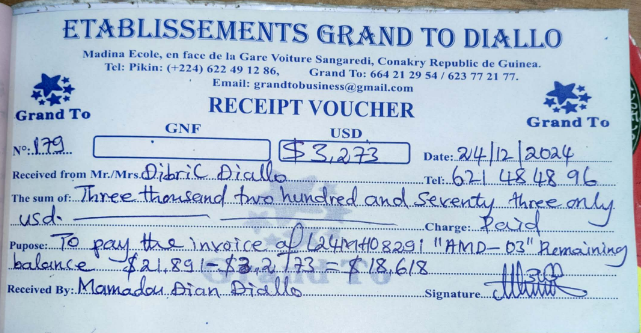 ETABLISSEMENTS GRAND TO DIALLO
Madina Ecole, en face de la Gare Voiture Sangaredi, Conakry Republic de Guinea.
Tel: Pikin: (+224) 622 49 12 86, Grand To: 664 21 29 54 / 623 77 21 77.
Email: grandtobusiness@gmail.com
Grand To
RECEIPT VOUCHER
Grand To
GNF USD
No: 179 $3,273 Date: 24/12/2024
Received from Mr./Mrs. Dibril Diallo Tel: 621 48 48 96
The sum of: Three thousand two hundred and seventy three only
usd. Charge: Paid
Pupose: To pay the invoice of L24MH08291 "AMD-03" Remaining
balance $21,891 - $3,273 = $18,618
Grand To
Received By: Mamadou Dian Diallo Signature